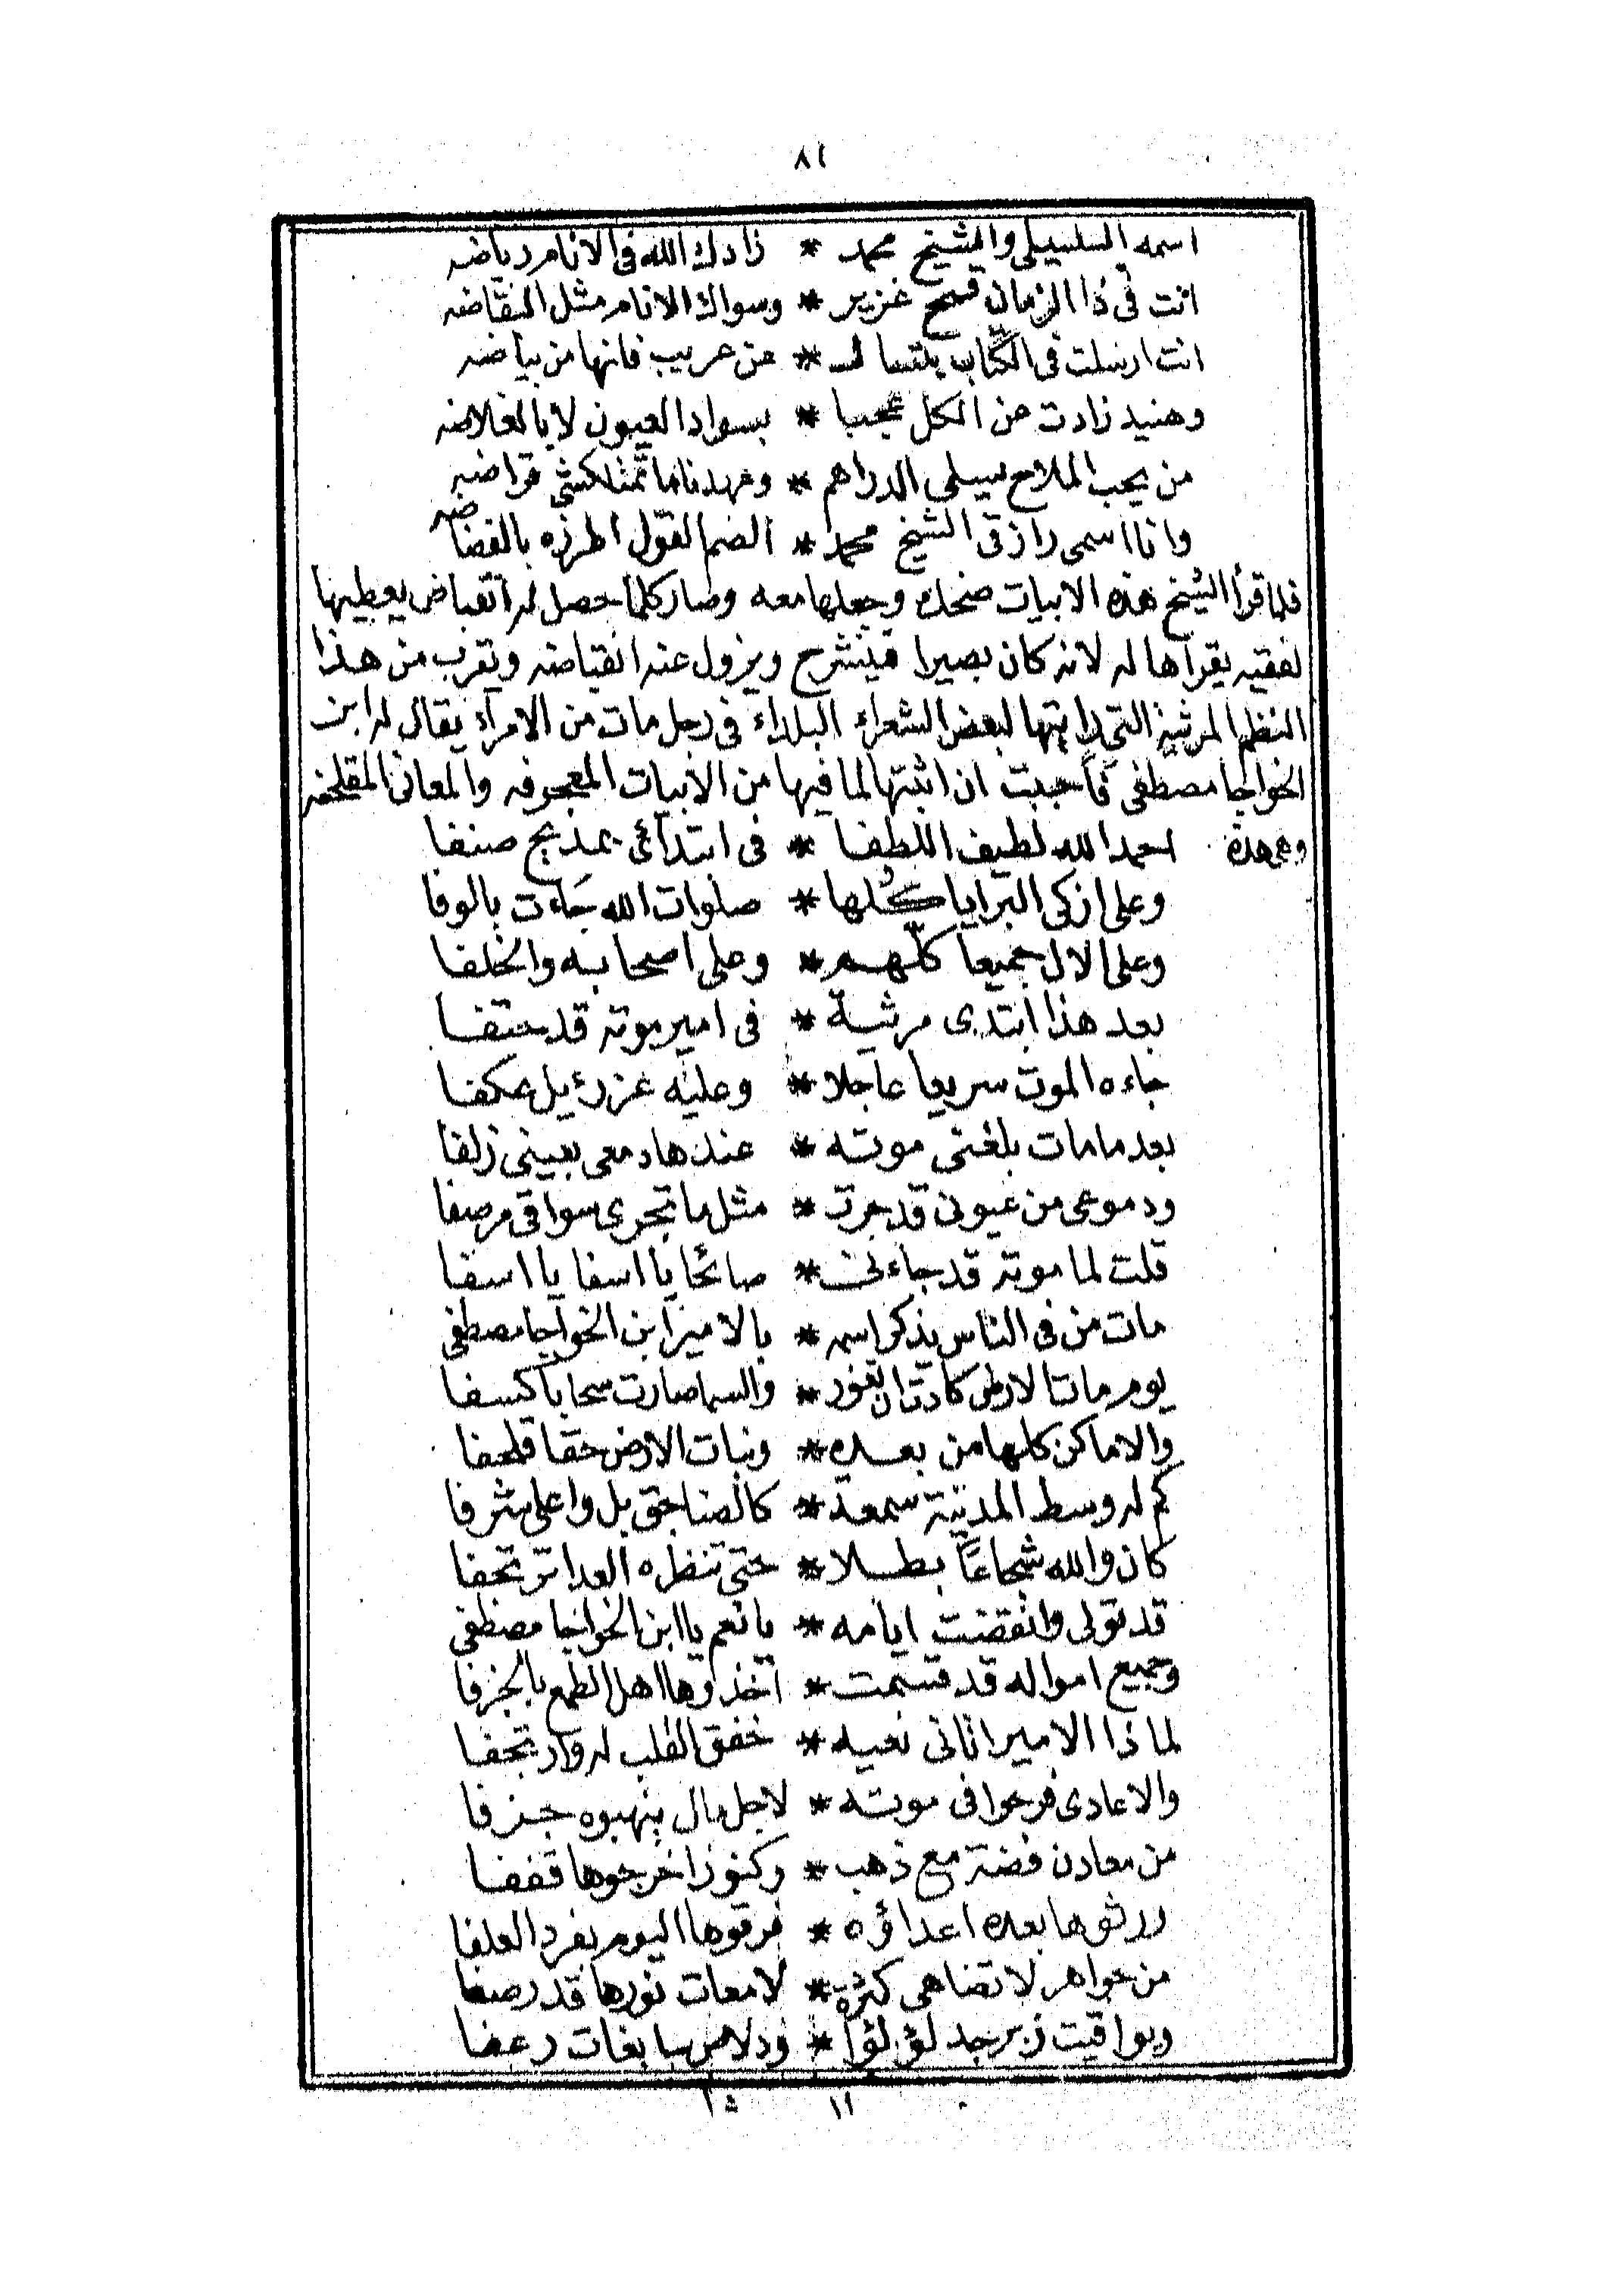 ٨١
اسمه السلسيلى والشيخ محمد * زادك الله فى الانام رياضه
انت فى ذا الزمان قمح غزير * وسواك الانام مثل النقاضه
انت ارسلت فى الكتاب
وهنيد زادت من الكل عجبا * بسواد العيون لا بالغلاضه
من يحب الملاح يسلى الدراهم
وانا اسمى رازقى الشيخ محمد * انضم القول اطرزه بالفضاضه
فلما قرأ الشيخ هذه الابيات ضحك وجعلها معه وصار كلما حصل له انقباض يعطيها
لفقيه يقرأها له لانه كان بصيرا فينشرح ويزول عنه انقباضه ويقرب من هذا
النظم المرثية التى رايتها لبعض الشعراء البلداء فى رجل مات من الامرآء يقال له ابن
الخواجا مصطفى فأحببت ان اثبتها لما فيها من الابيات المعجوفه والمعانى المقلحفه
وهى هذه احمد الله لطيف اللطفا * فى ابتدآئى بمديح صنفا
وعلى ازكى البرايا كلها * صلوات الله جاءت بالوفا
وعلى الال جميعا كلهم * وعلى اصحابه والخلفا
بعد هذا ابتدى مرثية * فى امير موته قد
جاءه الموت سريعا عاجلا * وعليه عزرئيل عكفا
بعد ما مات بلغنى موته * عندها دمعى بعينى زلفا
ودموعى من عيونى قد جرت * مثل ما تجرى سواقى مرصفا
قلت لما موته قد جاءنى * صائحا يا اسفا يا اسفا
مات من فى الناس يذكر اسمه * بالامير ابن الخواجا مصطفى
يوم مات الارض كادت ان تغور * والسما صارت سحابا كسفا
والاماكن كلها من بعده * ونبات الارض حقا قلحفا
كم له وسط المدينة سمعة * كالصناجق بل واعلى شرفا
كان والله شجاعا بطلا * حتى تنظره العدا ترتجفا
قد تولى وانقضت ايامه * يا نعم يا ابن الخواجا مصطفى
وجميع امواله قد قسمت * اخذوها اهل الطمع بالجزفا
لما ذا الامير اتانى نعيه * خفق القلب له وارتجفا
والاعادى فرحوا فى موته * لاجل مال ينهبوه جزفا
من معادن فضة مع ذهب * وكنوز اخرجوها قففا
ورثوها بعده اعداؤه * فرقوها اليوم بفرد العلفا
من جواهر لا تضاهى كثرة * لامعات نورها قد رصفا
ويواقيت زبرجد لؤلؤا * ودلاص سابغات رعفا
١١